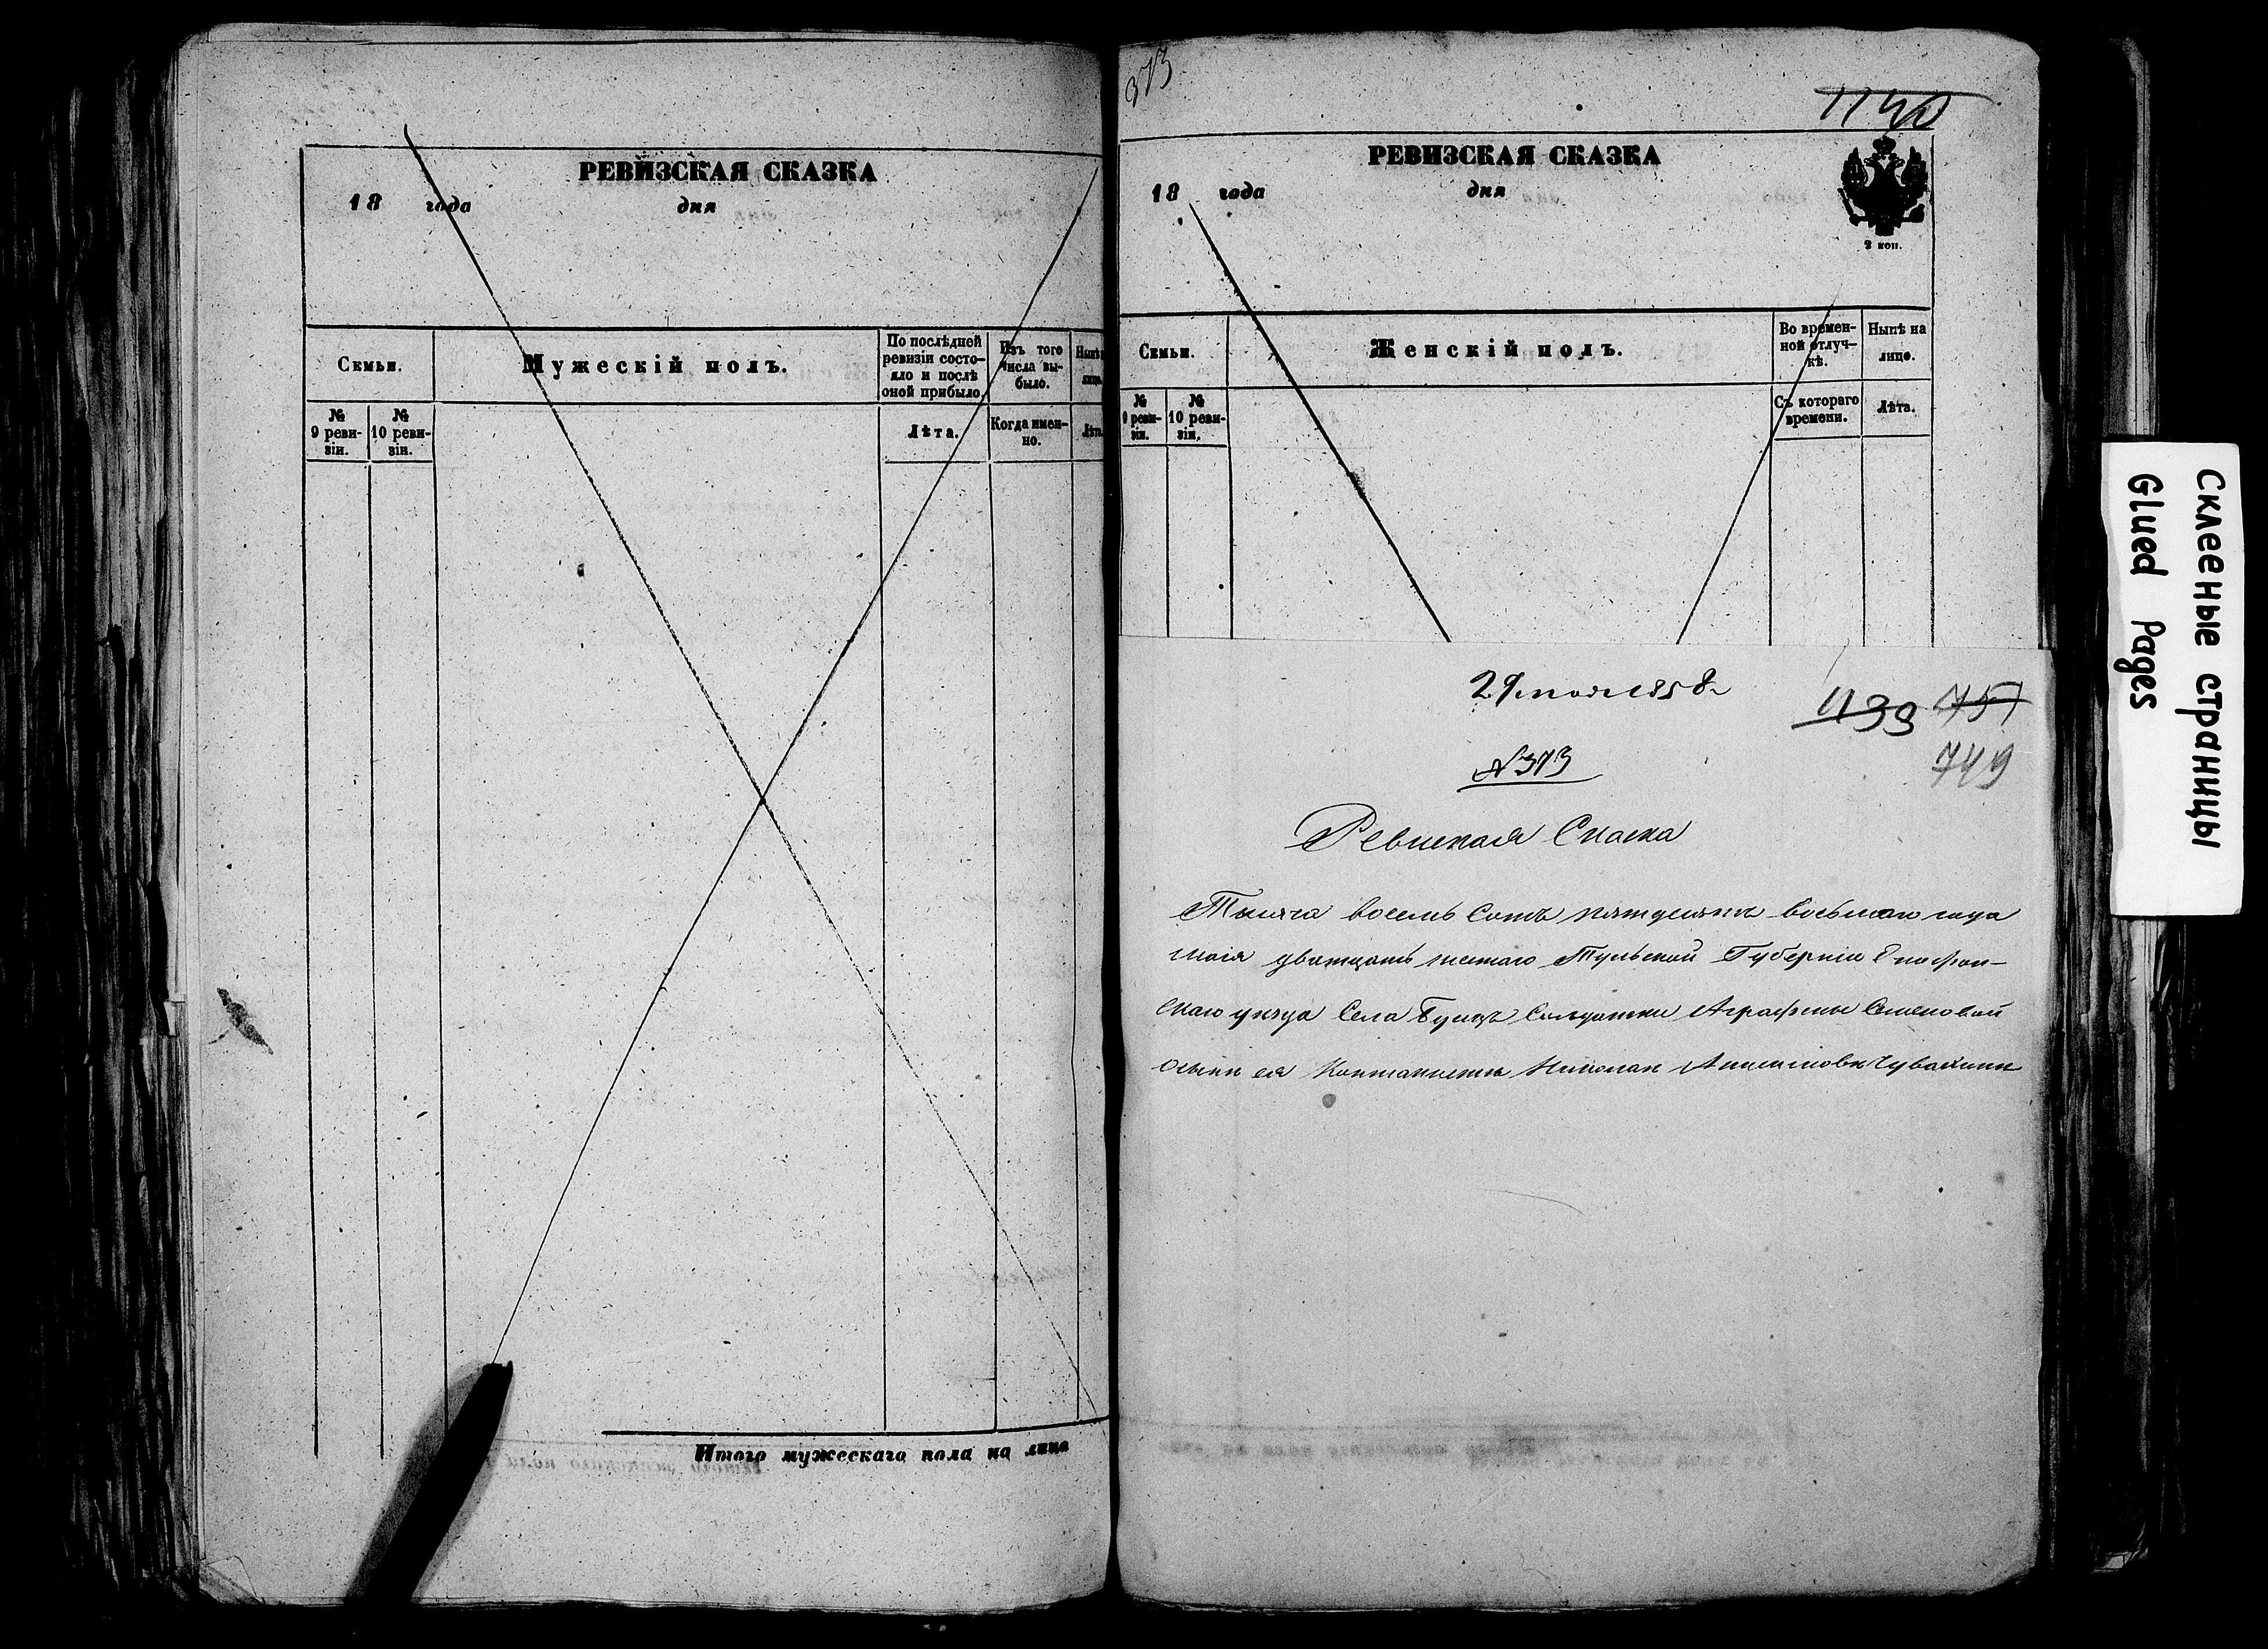 РЕВИЗСКАЯ СКАЗКА
18 года дня
Семьи.
Мужескій полъ.
По послѣдней ревизіи состояло и послѣ оной прибыло.
Изъ того числа выбыло.
№ 9 ревизіи.
№ 10 ревизіи.
Лѣта.
Когда именно.
Лѣта.
Итого мужескаго пола на лицо
373
1140
РЕВИЗСКАЯ СКАЗКА
18 года дня
2 коп.
Семьи.
Женскій полъ.
Во временной отлучкѣ.
Нынѣ на лицо.
№ 9 ревизіи.
№ 10 ревизіи.
Съ котораго времени.
Лѣта.
29 мая 1858
1139 757
749
№ 373
Ревиская Скаска
Тысяча восемь сотъ пятдесятъ восьмаго года
маія дватцать шестаго Тульской Губерніи Епифан-
скаго уезда Села Буицъ Салдатки Аграфены Семеновой
осыни ея Кантанистъ Николаи
Склееные страницы
Glued Pages